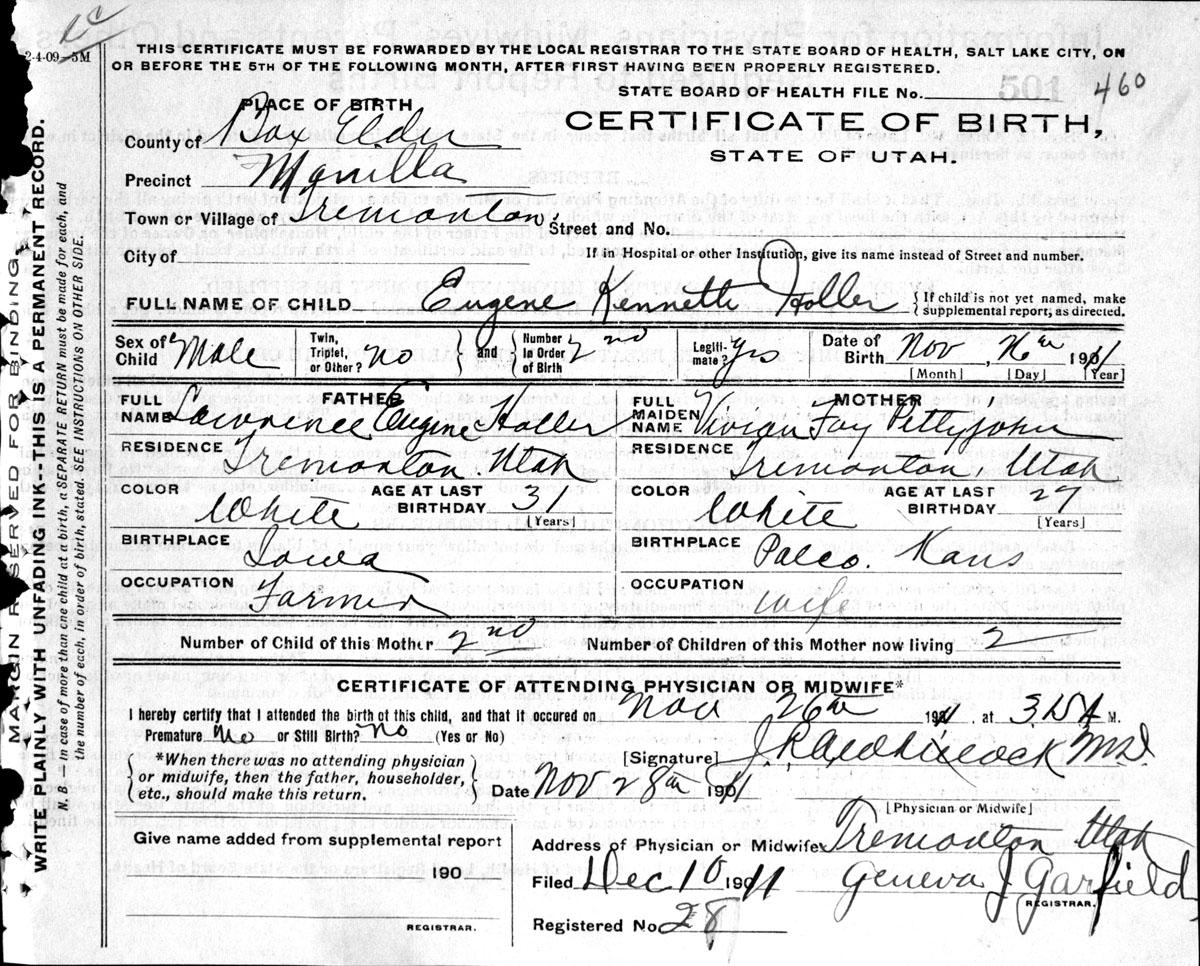 2-4-09-5M
THIS CERTIFICATE MUST BE FORWARDED BY THE LOCAL REGISTRAR TO THE STATE BOARD OF HEALTH, SALT LAKE CITY, ON
OR BEFORE THE 5TH OF THE FOLLOWING MONTH, AFTER FIRST HAVING BEEN PROPERLY REGISTERED.
STATE BOARD OF HEALTH FILE No. 501 460
PLACE OF BIRTH
CERTIFICATE OF BIRTH,
STATE OF UTAH.
County of Box Elder
Precinct Manilla
Town or Village of Tremonton; Street and No.
City of
If in Hospital or other Institution, give its name instead of Street and number.
FULL NAME OF CHILD Eugene Kenneth Holler { If child is not yet named, make supplemental report, as directed.
Sex of Child Male Twin, Triplet, or Other? no } and { Number in Order of Birth 2nd Legitimate? Yes Date of Birth Nov 26th 1911
[Month] [Day] [Year]
FATHER
FULL NAME Lawrence Eugene Holler
RESIDENCE Tremonton Utah
COLOR White AGE AT LAST BIRTHDAY 31 [Years]
BIRTHPLACE Iowa
OCCUPATION Farmer
MOTHER
FULL MAIDEN NAME Vivian Fay Pettyjohn
RESIDENCE Tremonton Utah
COLOR White AGE AT LAST BIRTHDAY 27 [Years]
BIRTHPLACE Palco. Kans
OCCUPATION wife
Number of Child of this Mother 2nd Number of Children of this Mother now living 2
CERTIFICATE OF ATTENDING PHYSICIAN OR MIDWIFE*
I hereby certify that I attended the birth of this child, and that it occured on Nov 26th 1911 at 3.15 A M.
Premature No or Still Birth? No (Yes or No)
*When there was no attending physician
or midwife, then the father, householder,
etc., should make this return.
[Signature] M.D.
Date Nov 28th 1911
[Physician or Midwife]
Give name added from supplemental report
190
REGISTRAR.
Address of Physician or Midwife Tremonton Utah
Filed Dec 10 1911 Geneva J Garfield
REGISTRAR.
Registered No. 28
MARGIN RESERVED FOR BINDING.
WRITE PLAINLY WITH UNFADING INK--THIS IS A PERMANENT RECORD.
N. B. — In case of more than one child at a birth, a SEPARATE RETURN must be made for each, and
the number of each, in order of birth, stated. SEE INSTRUCTIONS ON OTHER SIDE.